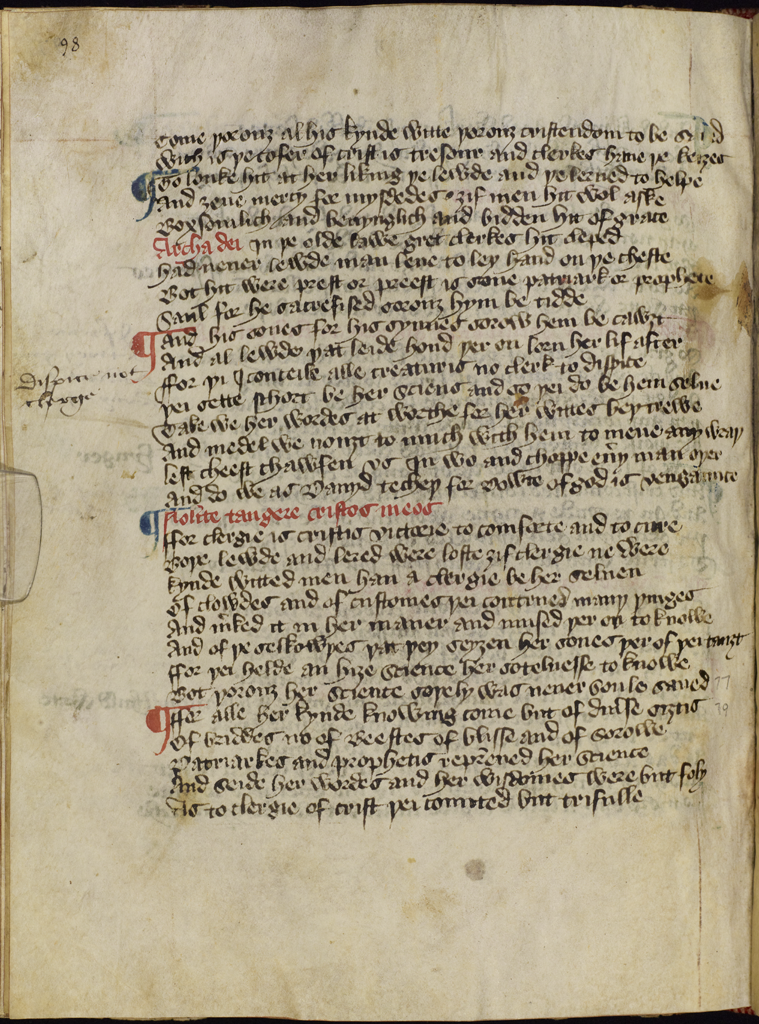 98
Come þorouȝ al his kynde witte þorouȝ cristendom to be saued
Wich is þe cofer of crist is tresour and clerkes haue þe keiȝes
To louke hit at her liking þe lewde and þe lerned to helpe
And ȝeue mercy for mysdedes ȝif men hit wol aske
Boxsomlich and benynglich and bidden hit of grace
Archa dei in þe olde lawe gret clerkes hit cleped
Had neuer lewde man leue to ley hand on þe cheste
Bot hit were prest or preest is sone patriark or prophete
Saul for he sacrefised sorouȝ hym be tidde
And his sones for his synnes sorow hem be cauȝt
And al lewde þat leide hond þer on lorn her lif after
ffor þi I conceile alle creaturis no clerk to dispice
dispice not
clergie
Þei sette schort be her sciens and so þei do be hem selue
Take we her wordes at worthe for her wittes bey trewe
And medel we nouȝt to much with hem to meue any weay
lest cheest chawfen vs in wo and choppe eny man oþer
And do we as Dauyd techeþ for dowte of god is vengaunce
Nolite tangere cristos meos
ffor clergie is cristis victorie to comforte and to cure
Boþe lewde and lered were lofte ȝif clergie ne were
Kynde witted men han a clergie be her seluen
Of clowdes and of customes þei contreued many þinges
And merked it in her maner and mused þer on to knowe
And of þe selkowþes þat þey seyȝen her sones þer of þei tauȝt
ffor þei helde an hiȝe science her sotelnesse to knowe
Bot þorouȝ her science soþely was neuer soule saued
ffor alle her kynde knowing come but of diuerse siȝtis
Of briddes no of Beestes of blisse and of sorowe
Patriarkes and prophetis repreued her science
And seide her wordes and her wisdomes were but foly
As to clergie of crist þei counted but trifulle